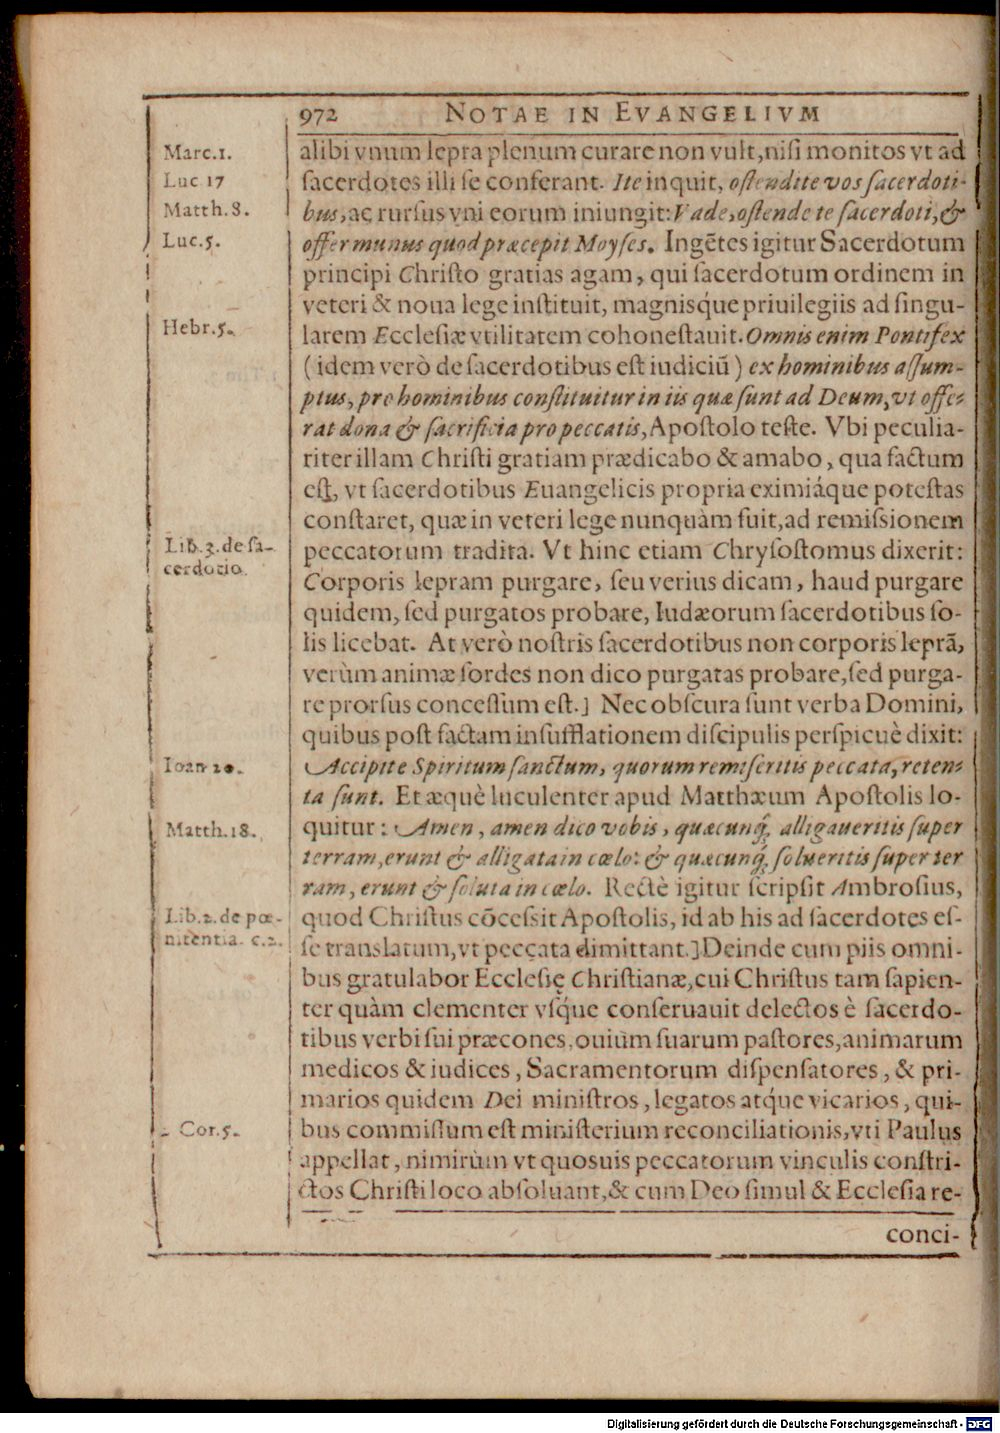 972 NOTAE IN EVANGELIVM
Marc.1.
Luc 17
Matth.8.
Luc.5.
Hebr.5.
Lib.3.de sa-
cerdotio.
Ioan 20.
Matth.18.
Lib.2.de pœ-
nitentia. c.2.
Cor.5.
alibi vnum lepra plenum curare non vult, nisi monitos vt ad
sacerdotes illi se conferant. Ite inquit, ostendite vos sacerdoti-
bus, ac rursus vni eorum iniungit: Vade, ostende te sacerdoti, &
offer munus quod præcepit Moyses. Ingẽtes igitur Sacerdotum
principi Christo gratias agam, qui sacerdotum ordinem in
veteri & noua lege instituit, magnisq́ue priuilegiis ad singu-
larem Ecclesiæ vtilitatem cohonestauit. Omnis enim Pontifex
( idem verò de sacerdotibus est iudiciũ ) ex hominibus assum-
ptus, pro hominibus constituitur in iis quæ sunt ad Deum, vt offe-
rat dona & sacrificia pro peccatis, Apostolo teste. Vbi peculia-
riter illam Christi gratiam prædicabo & amabo, qua factum
est, vt sacerdotibus Euangelicis propria eximiáque potestas
constaret, quæ in veteri lege nunquàm fuit, ad remissionem
peccatorum tradita. Vt hinc etiam Chrysostomus dixerit:
Corporis lepram purgare, seu verius dicam, haud purgare
quidem, sed purgatos probare, Iudæorum sacerdotibus so-
lis licebat. At verò nostris sacerdotibus non corporis leprã,
verùm animæ sordes non dico purgatas probare, sed purga-
re prorsus concessum est.] Nec obscura sunt verba Domini,
quibus post factam insufflationem discipulis perspicuè dixit:
Accipite Spiritum sanctum, quorum remiseritis peccata, reten-
ta sunt. Et æquè luculenter apud Matthæum Apostolis lo-
quitur: Amen, amen dico vobis, quæcunq́; alligaueritis super
terram, erunt & alligata in cœlo: & quæcunq́; solueritis super ter
ram, erunt & soluta in cœlo. Rectè igitur scripsit Ambrosius,
quod Christus cõcessit Apostolis, id ab his ad sacerdotes es-
se translatum, vt peccata dimittant.] Deinde cum piis omni-
bus gratulabor Ecclesię Christianæ, cui Christus tam sapien-
ter quàm clementer vsq́ue conseruauit delectos è sacerdo-
tibus verbi sui præcones, ouium suarum pastores, animarum
medicos & iudices, Sacramentorum dispensatores, & pri-
marios quidem Dei ministros, legatos atq́ue vicarios, qui-
bus commissum est ministerium reconciliationis, vti Paulus
appellat, nimirùm vt quosuis peccatorum vinculis constri-
ctos Christi loco absoluant, & cum Deo simul & Ecclesia re-
conci-
Digitalisierung gefördert durch die Deutsche Forschungsgemeinschaft - DFG